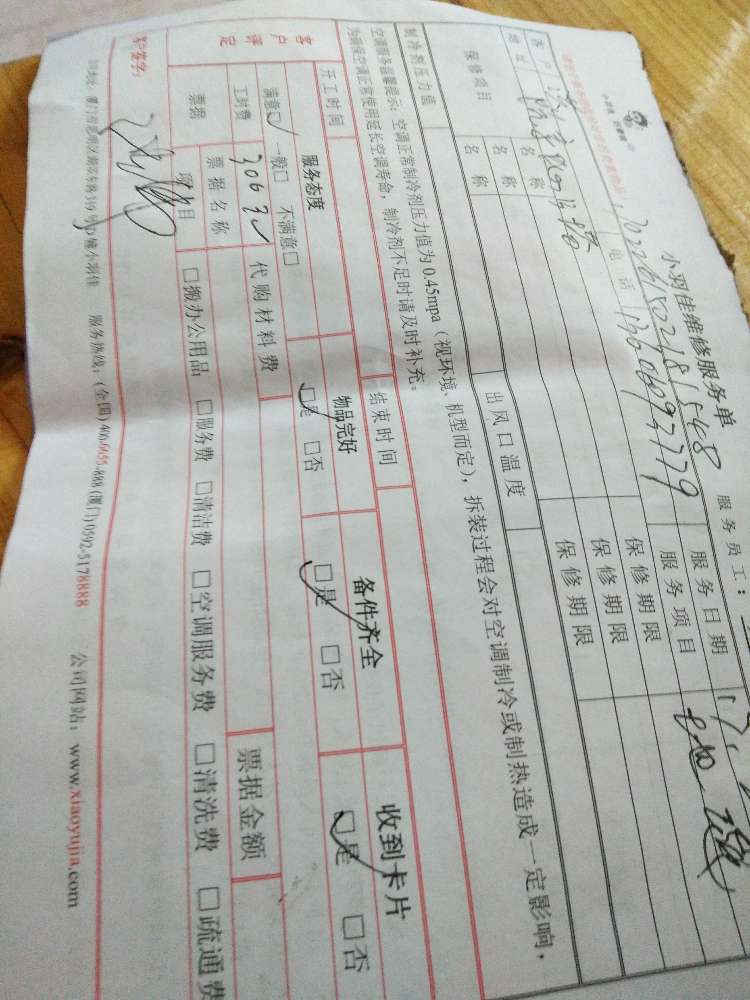 小羽佳维修服务单
202261802181548 服务员工：
客户 电话 13606092779 服务日期
地址 服务项目
保修项目 名称 保修期限
名称 保修期限
名称 保修期限
制冷剂压力值 出风口温度
空调服务温馨提示：空调正常制冷剂压力值为0.45mpa（视环境、机型而定），拆装过程会对空调制冷或制热造成一定影响，
为确保空调正常使用延长空调寿命，制冷剂不足时请及时补充。
开工时间 结束时间
客户评定 服务态度 物品完好 备件齐全 收到卡片
满意☑ 一般□ 不满意□ ☑是 □否 ☑是 □否 ☑是 □否
工时费 306元 代购材料费
票据 票据名称 票据金额
项目 □搬办公用品 □服务费 □清洁费 □空调服务费 □清洗费 □疏通费
客户签字：
地址：厦门市思明区湖滨东路319号D幢小羽佳 服务热线：(全国)400-6655-888 (厦门)0592-5178888 公司网站：www.xiaoyujia.com